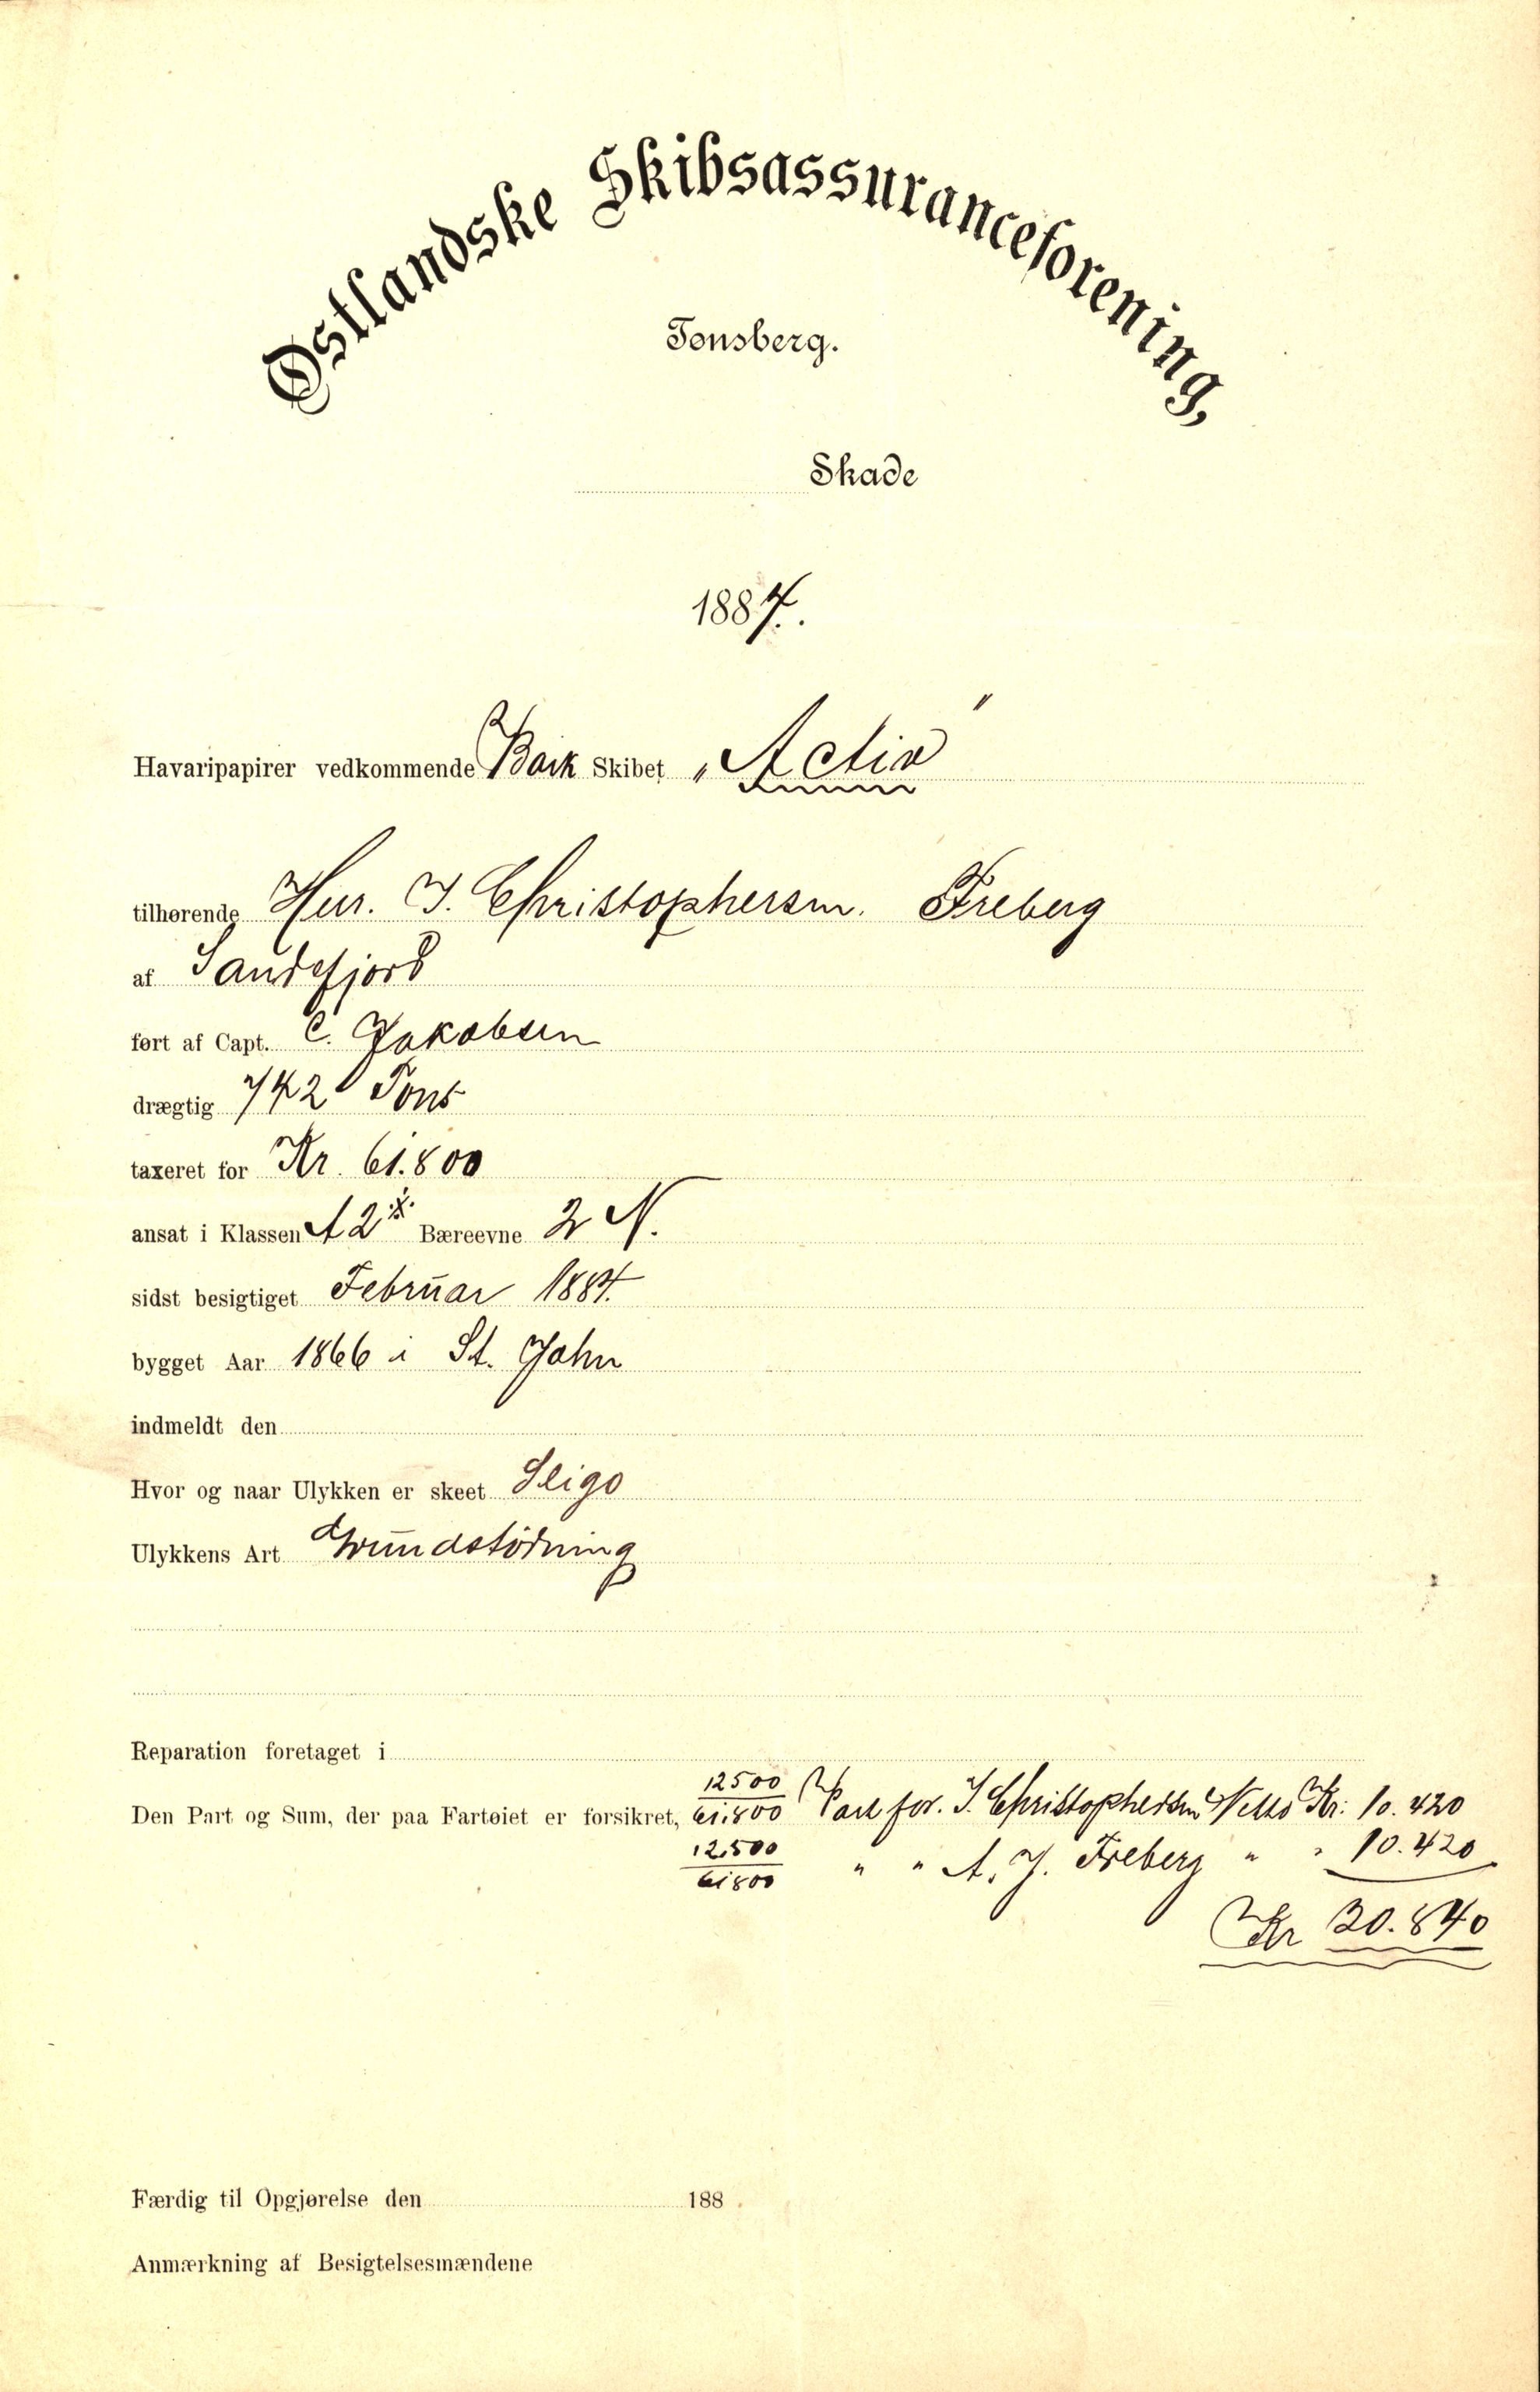 Østlandske Skibsassuranceforening,
Tønsberg.
Skade
1884.
Havaripapirer vedkommende Bark Skibet „Activ"
tilhørende Herr. J. Christophersen. Freberg
af Sandefjord
ført af Capt. C. Jakobsen
drægtig 742 Tons
taxeret for Kr. 61.800
ansat i Klassen A2 Bæreevne 2 N.
sidst besigtiget Februar 1884.
bygget Aar 1866 i St. John
indmeldt den
Hvor og naar Ulykken er skeet Sligo
Ulykkens Art Grundstødning
Reparation foretaget i
Den Part og Sum, der paa Fartøiet er forsikret, 12500/61.800 Part for. J. Christophersen Netto Kr: 10.420
12.500/61800 " " A. J. Freberg " " 10.420
Kr 20.840
Færdig til Opgjørelse den 188 .
Anmærkning af Besigtelsesmændene